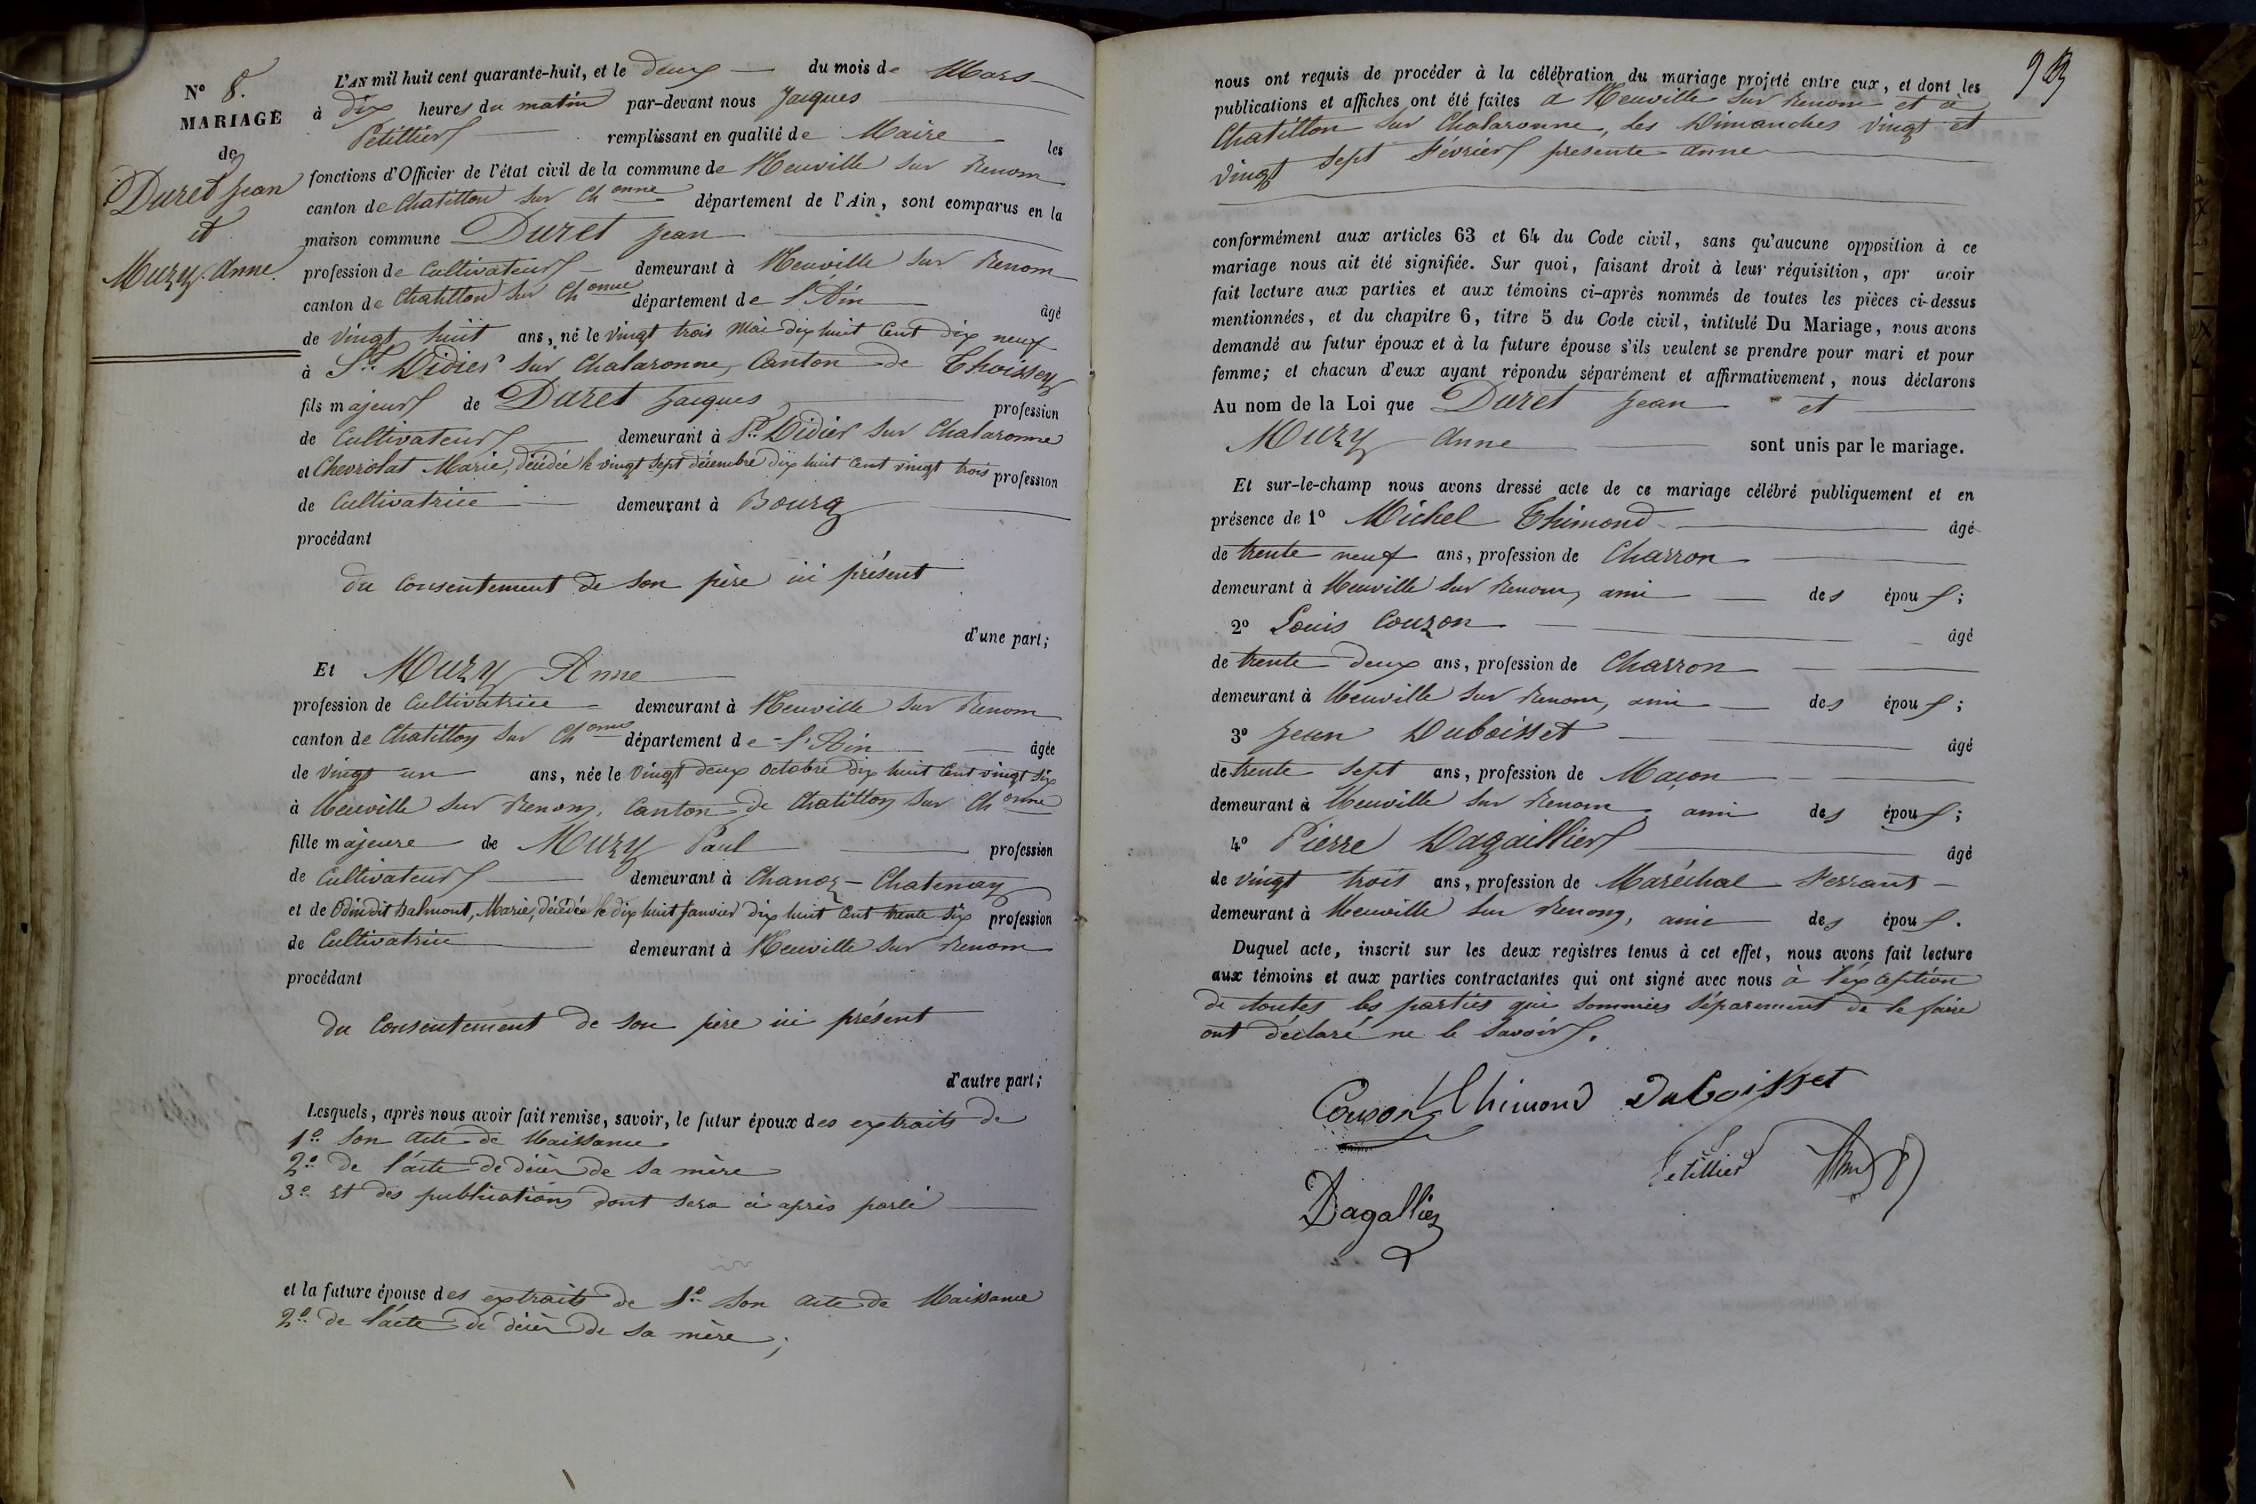 N° 8.
MARIAGE
de
Duret Jean
et
Muzy Anne.
L'AN mil huit cent quarante-huit, et le deux du mois de Mars
à dix heures du matin par-devant nous Jacques
Petillier remplissant en qualité de Maire les
fonctions d'Officier de l'état civil de la commune de Neuville sur Renom
canton de Chatillon sur Ch onne département de l'Ain, sont comparus en la
maison commune Duret Jean
profession de Cultivateur demeurant à Neuville sur Renom
canton de Chatillon sur Ch onne département de l'Ain âgé
de vingt huit ans, né le vingt trois Mai dix huit Cent dix neuf
à St. Didier sur Chalaronne, Canton de Thoissey
fils majeur de Duret Jacques profession
de Cultivateur demeurant à St. Didier sur Chalaronne
et Chevrolat Marie, décédée le vingt sept décembre dix huit Cent vingt trois profession
de Cultivatrice demeurant à Bourg
procédant
du Consentement de son père ici présent
d'une part;
Et Muzy Anne
profession de Cultivatrice demeurant à Neuville sur Renom
canton de Chatillon sur Ch onne département de l'Ain âgée
de vingt un ans, née le vingt deux octobre dix huit Cent vingt six
à Neuville sur Renom, Canton de Chatillon sur Ch onne
fille majeure de Muzy Paul profession
de Cultivateur demeurant à Chanoz-Chatenay
et de Odin dit Balmont, Marie, décédée le dix huit Janvier dix huit Cent trente six profession
de Cultivatrice demeurant à Neuville sur Renom
procédant
du Consentement de son père ici présent
d'autre part;
Lesquels, après nous avoir fait remise, savoir, le futur époux des extraits de
1° son acte de Naissance
2° de l'acte de décès de sa mère
3° et des publications dont sera ci après parlé
et la future épouse des extraits de 1° son acte de Naissance
2° de l'acte de décès de sa mère;
93
nous ont requis de procéder à la célébration du mariage projeté entre eux, et dont les
publications et affiches ont été faites à Neuville sur Renom et à
Chatillon sur Chalaronne, les Dimanches vingt et
vingt sept Février presente anne
conformément aux articles 63 et 64 du Code civil, sans qu'aucune opposition à ce
mariage nous ait été signifiée. Sur quoi, faisant droit à leur réquisition, apr avoir
fait lecture aux parties et aux témoins ci-après nommés de toutes les pièces ci-dessus
mentionnées, et du chapitre 6, titre 5 du Code civil, intitulé Du Mariage, nous avons
demandé au futur époux et à la future épouse s'ils veulent se prendre pour mari et pour
femme; et chacun d'eux ayant répondu séparément et affirmativement, nous déclarons
Au nom de la Loi que Duret Jean et
Muzy Anne sont unis par le mariage.
Et sur-le-champ nous avons dressé acte de ce mariage célébré publiquement et en
présence de 1° Michel Thimond âgé
de trente neuf ans, profession de Charron
demeurant à Neuville sur Renom, ami des époux;
2° Louis Couzon âgé
de trente deux ans, profession de Charron
demeurant à Neuville sur Renom, ami des époux;
3° Jean Duboisset âgé
de trente sept ans, profession de Maçon
demeurant à Neuville sur Renom, ami des époux;
4° Pierre Dagaillier âgé
de vingt trois ans, profession de Maréchal Ferrant
demeurant à Neuville sur Renom, ami des époux.
Duquel acte, inscrit sur les deux registres tenus à cet effet, nous avons fait lecture
aux témoins et aux parties contractantes qui ont signé avec nous à l'exception
de toutes les parties qui sommées séparement de le faire
ont déclaré ne le savoir.
Couson Thimond Duboisset
Petillier
Dagallier